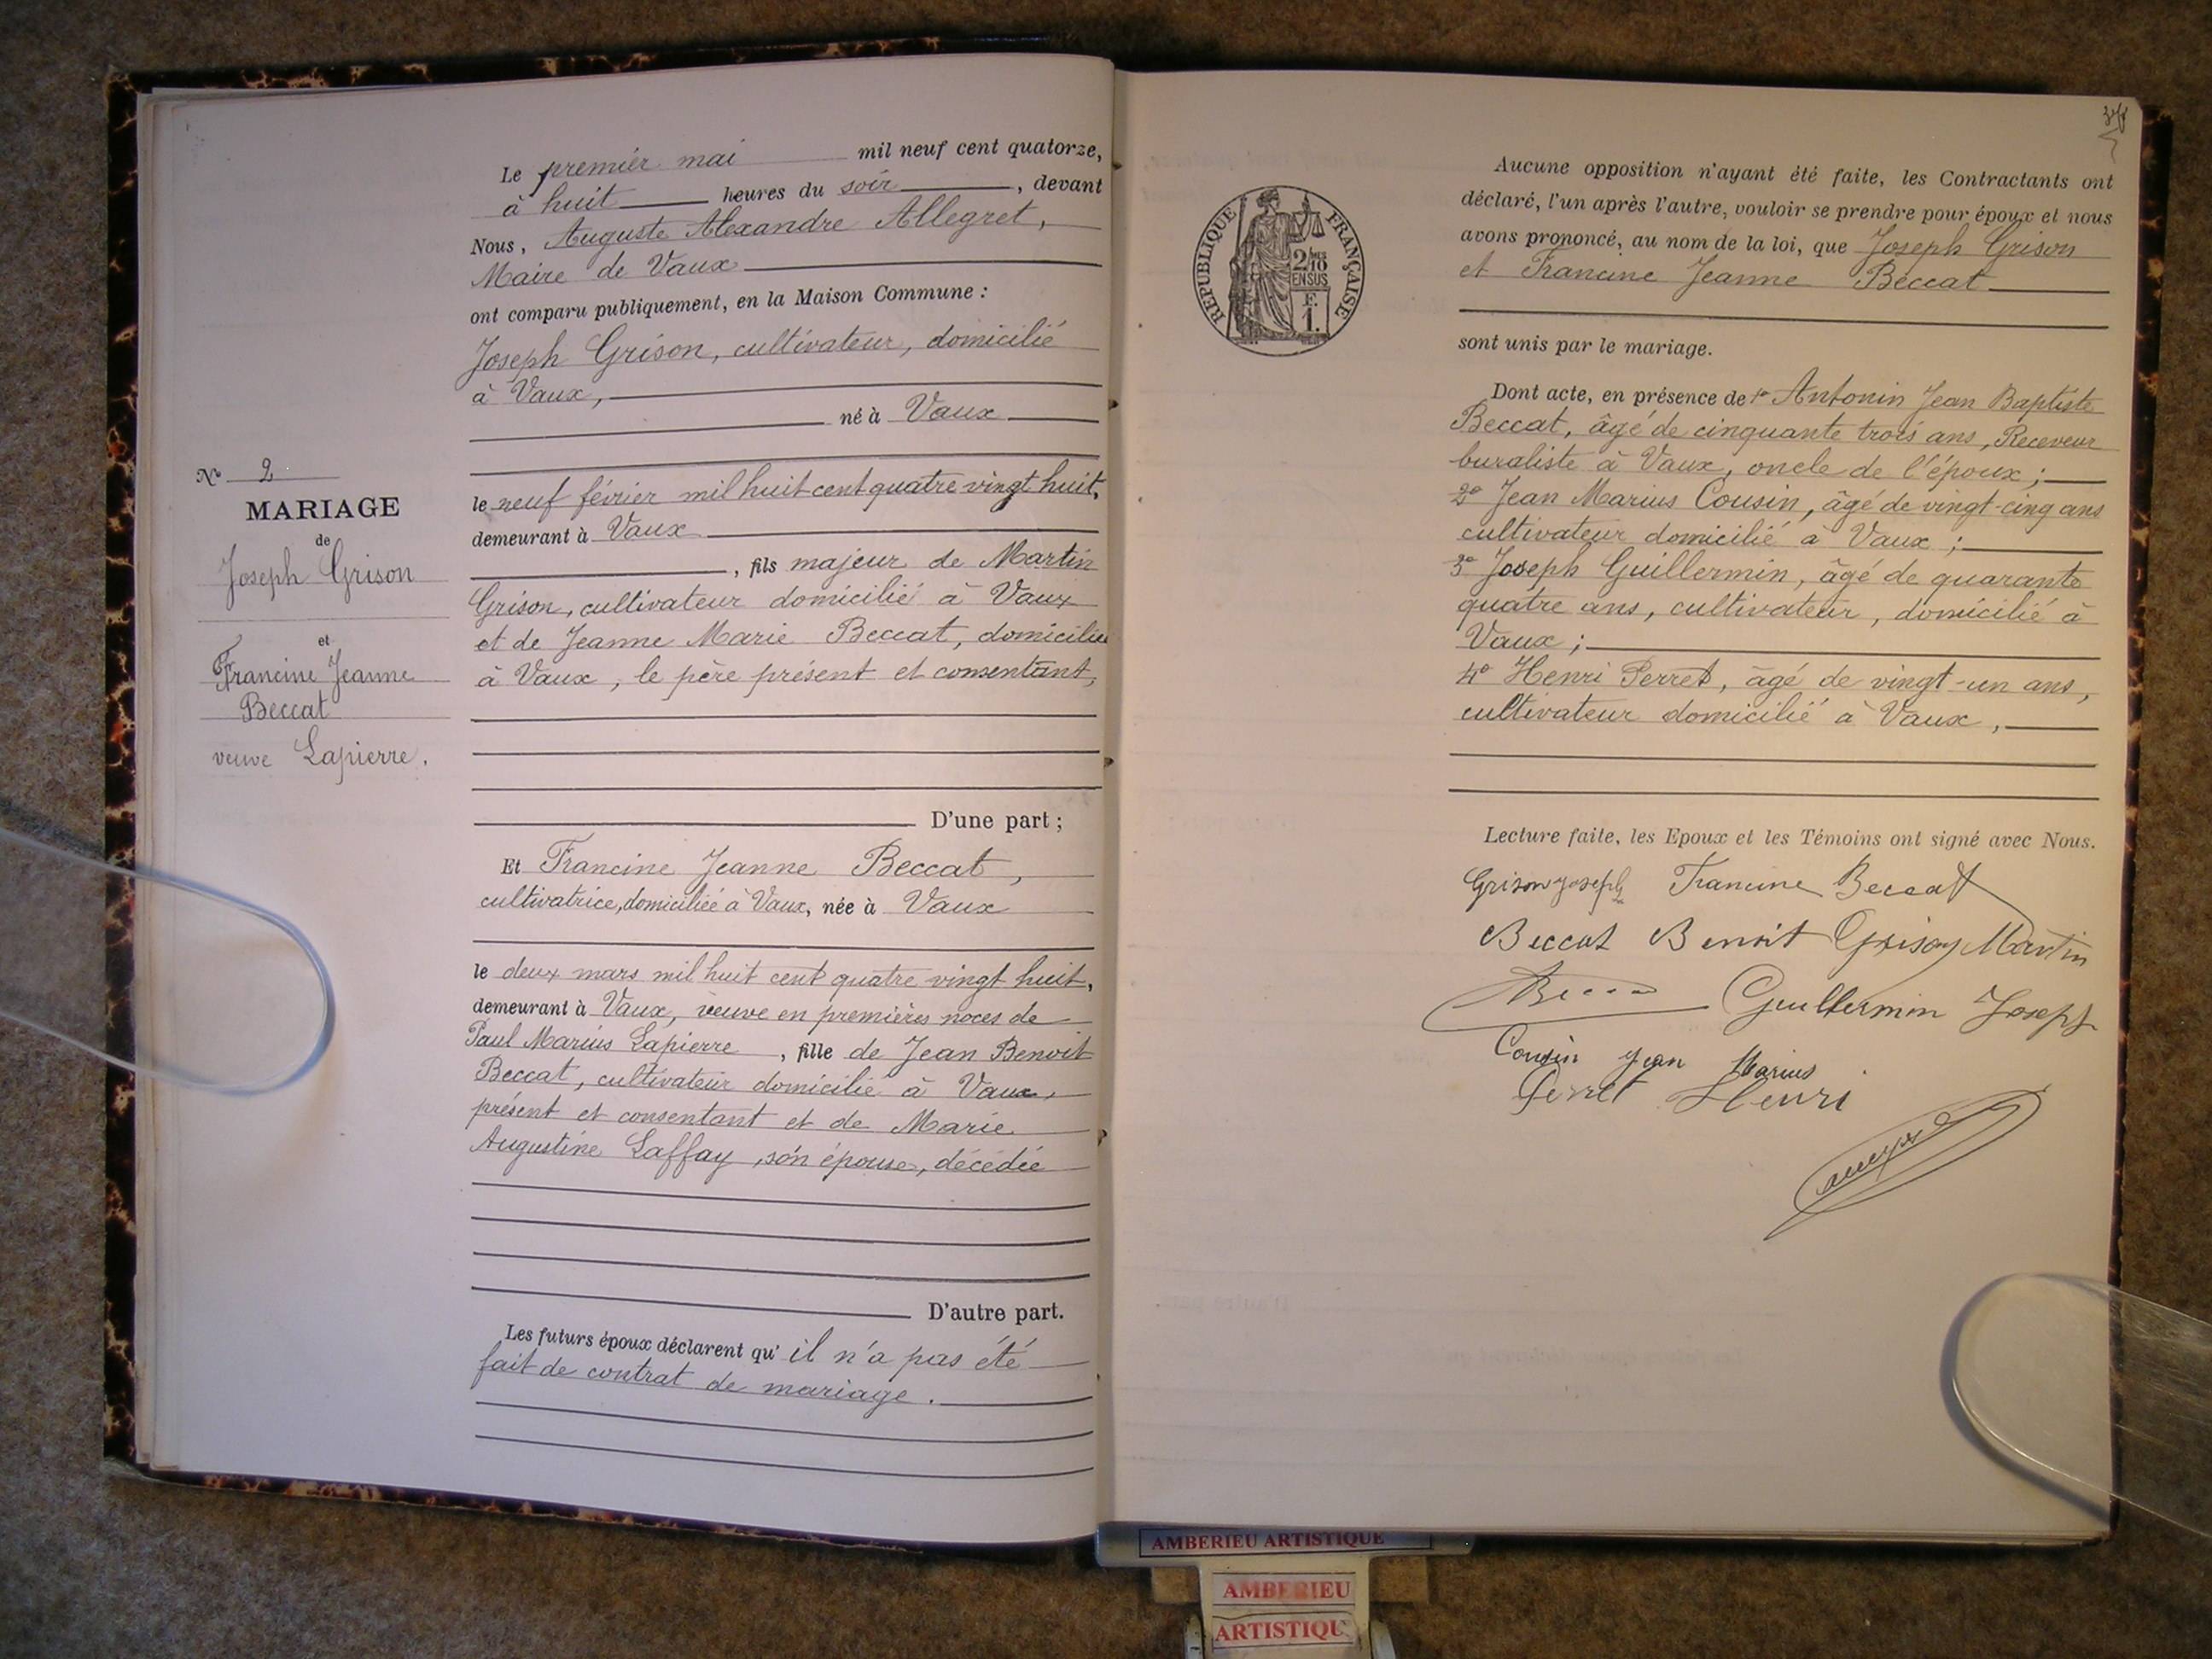 Nº 2
MARIAGE
de
Joseph Grison
et
Francine Jeanne
Beccat
veuve Lapierre.
Le premier mai mil neuf cent quatorze,
à huit heures du soir, devant
Nous, Auguste Alexandre Allegret,
Maire de Vaux
ont comparu publiquement, en la Maison Commune :
Joseph Grison, cultivateur, domicilié
à Vaux,
né à Vaux
le neuf février mil huit cent quatre vingt huit,
demeurant à Vaux
, fils majeur de Martin
Grison, cultivateur domicilié à Vaux
et de Jeanne Marie Beccat, domiciliée
à Vaux, le père présent et consentant,
D'une part ;
Et Francine Jeanne Beccat,
cultivatrice, domiciliée à Vaux, née à Vaux
le deux mars mil huit cent quatre vingt huit,
demeurant à Vaux, veuve en premières noces de
Paul Marius Lapierre, fille de Jean Benoit
Beccat, cultivateur domicilié à Vaux,
présent et consentant et de Marie
Augustine Laffay, son épouse, décédée
D'autre part.
Les futurs époux déclarent qu' il n'a pas été
fait de contrat de mariage.
RÉPUBLIQUE FRANÇAISE
2/10
EN SUS
F.
1.
Aucune opposition n'ayant été faite, les Contractants ont
déclaré, l'un après l'autre, vouloir se prendre pour époux et nous
avons prononcé, au nom de la loi, que Joseph Grison
et Francine Jeanne Beccat
sont unis par le mariage.
Dont acte, en présence de 1º Antonin Jean Baptiste
Beccat, âgé de cinquante trois ans, Receveur
buraliste à Vaux, oncle de l'époux ;
2º Jean Marius Cousin, âgé de vingt-cinq ans
cultivateur domicilié à Vaux ;
3º Joseph Guillermin, âgé de quarante
quatre ans, cultivateur, domicilié à
Vaux ;
4º Henri Perret, âgé de vingt-un ans,
cultivateur domicilié à Vaux,
Lecture faite, les Epoux et les Témoins ont signé avec Nous.
Grison Joseph Francine Beccat
Beccat Benoit Grison Martin
Guillermin Joseph
Cousin Jean Marius
Perret Henri
AMBERIEU ARTISTIQUE
AMBERIEU
ARTISTIQU